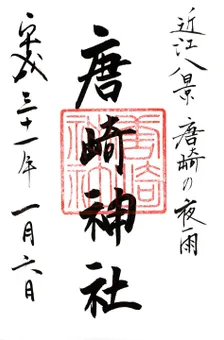 近江八景 唐崎の夜雨
唐崎神社
平成三十一年 一月六日
唐崎神社